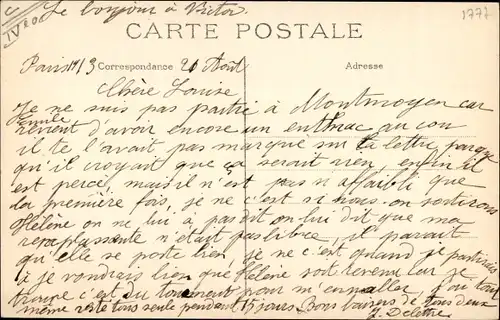 Le bonjour à Victor
1777
IV20
CARTE POSTALE
Paris 1913 Correspondance 20 Août
Adresse
Chère Louise
Je ne suis pas partie à Montmoyen car
Emile
revient d'avoir encore un enthrac au cou
il te l'avait pas marqué sur ta lettre parce
qu'il croyait que ça serait rien, enfin il
est percé, mais il n'est pas si affaibli que
la première fois, je ne c'est si nous on sortirons
Hélène on ne lui a pas dit on lui dit que ma
remplassante n'était pas libre, il parait
qu'elle se porte bien, je ne c'est quand je partirais
si je voudrais bien que Hélène soit revenue car je
trouve c'est du tourment pour m'en aller, j'ai tout
même resté tous seule pendant 15 jours. Bons baisers de tous deux
J. Delettre